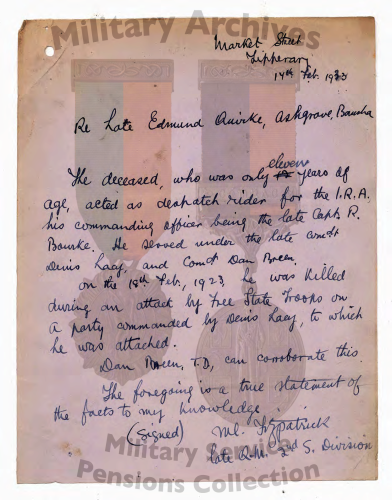 Military Archives
Market Street
Tipperary
14th Feb. 1933
Re Late Edmund Quirke, Ashgrove, Bansha
The deceased, who was only eleven years of
age, acted as despatch rider for the I.R.A.
his commanding officer being the late Capt. R.
Bourke. He served under the late Comdt
Denis Lacy, and Comdt Dan Breen.
On the 18th Feb., 1923 he was killed
during an attack by Free State Troops on
a party commanded by Denis Lacy, to which
he was attached.
Dan Breen, T.D, can corroborate this.
The foregoing is a true statement of
the facts to my knowledge.
(Signed) Ml. Fitzpatrick
late Q.M. 2nd S. Division
Military Service
Pensions Collection